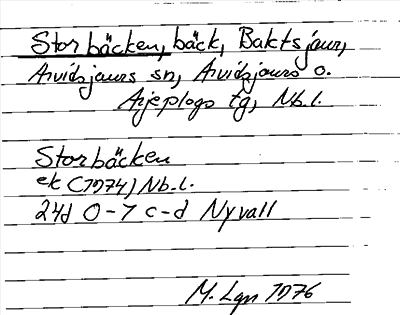 Storbäcken, bäck, Baktsjaur,
Arvidsjaurs sn, Arvidsjaurs o.
Arjeplogs tg, Nb.l.
Storbäcken
ek (1974) Nb.l.
24d 0-7 c-d Nyvall
M. Lgn 1976